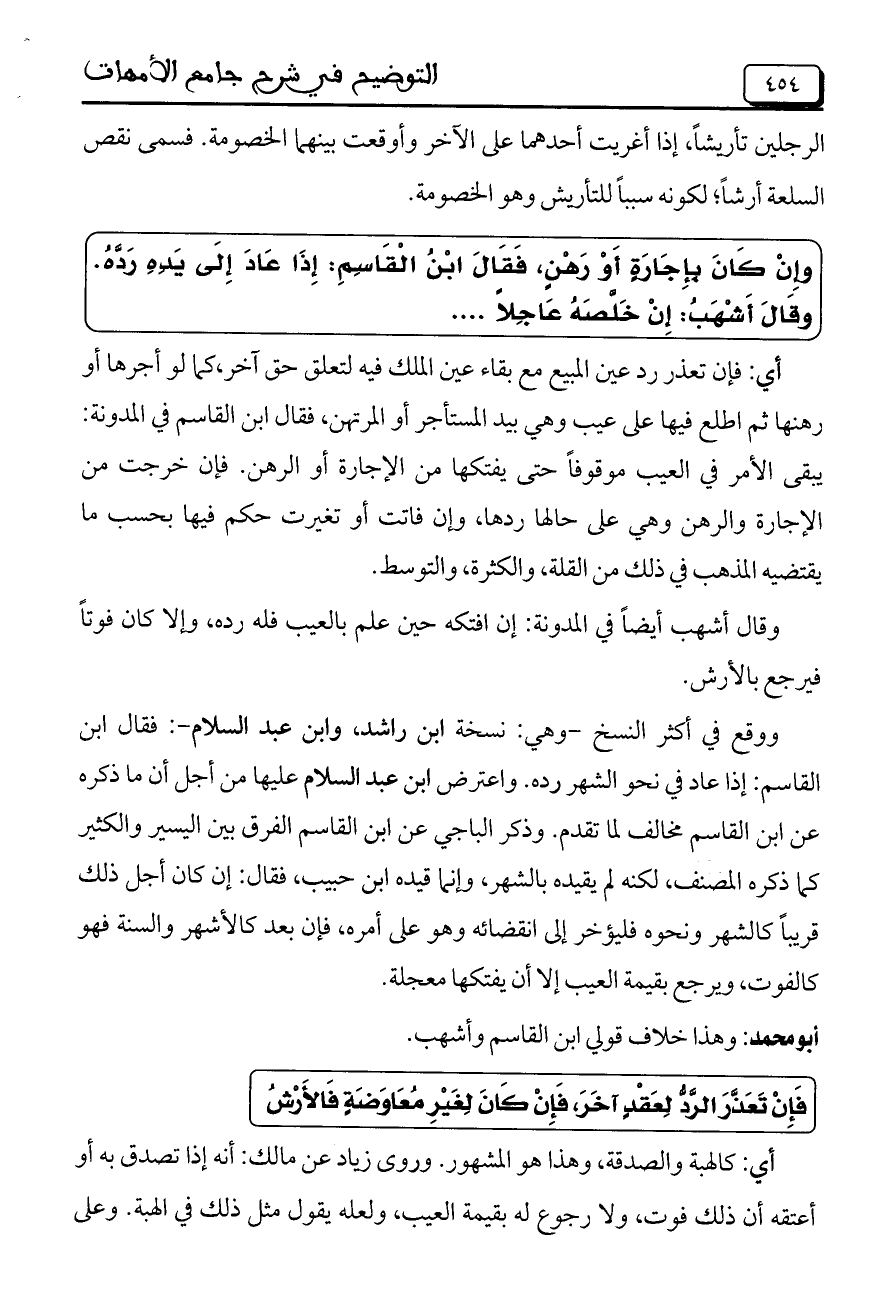 ٤٥٤
التوضيح في شرح جامع الأمهات
الرجلين تأريشاً، إذا أغريت أحدهما على الآخر وأوقعت بينهما الخصومة. فسمى نقص
السلعة أرشاً؛ لكونه سبباً للتأريش وهو الخصومة.
وإِنْ كَانَ بِإِجَارَةٍ أَوْ رَهْنٍ، فَقَالَ ابْنُ الْقَاسِمِ: إِذَا عَادَ إِلَى يَدِهِ رَدَّهُ.
وقَالَ أَشْهَبُ: إِنْ خَلَّصَهُ عَاجِلاً ....
أي: فإن تعذر رد عين المبيع مع بقاء عين الملك فيه لتعلق حق آخر،كما لو أجرها أو
رهنها ثم اطلع فيها على عيب وهي بيد المستأجر أو المرتهن، فقال ابن القاسم في المدونة:
يبقى الأمر في العيب موقوفاً حتى يفتكها من الإجارة أو الرهن. فإن خرجت من
الإجارة والرهن وهي على حالها ردها، وإن فاتت أو تغيرت حكم فيها بحسب ما
يقتضيه المذهب في ذلك من القلة، والكثرة، والتوسط.
وقال أشهب أيضاً في المدونة: إن افتكه حين علم بالعيب فله رده، وإلا كان فوتاً
فيرجع بالأرش.
ووقع في أكثر النسخ -وهي: نسخة ابن راشد، وابن عبد السلام-: فقال ابن
القاسم: إذا عاد في نحو الشهر رده. واعترض ابن عبد السلام عليها من أجل أن ما ذكره
عن ابن القاسم مخالف لما تقدم. وذكر الباجي عن ابن القاسم الفرق بين اليسير والكثير
كما ذكره المصنف، لكنه لم يقيده بالشهر، وإنما قيده ابن حبيب، فقال: إن كان أجل ذلك
قريباً كالشهر ونحوه فليؤخر إلى انقضائه وهو على أمره، فإن بعد كالأشهر والسنة فهو
كالفوت، ويرجع بقيمة العيب إلا أن يفتكها معجلة.
أبو محمد: وهذا خلاف قولي ابن القاسم وأشهب.
فَإِنْ تَعَذَّرَ الرَّدُّ لِعَقْدٍ آخَرَ، فَإِنْ كَانَ لِغَيْرِ مُعَاوَضَةٍ فَالأَرْشُ
أي: كالهبة والصدقة، وهذا هو المشهور. وروى زياد عن مالك: أنه إذا تصدق به أو
أعتقه أن ذلك فوت، ولا رجوع له بقيمة العيب، ولعله يقول مثل ذلك في الهبة. وعلى